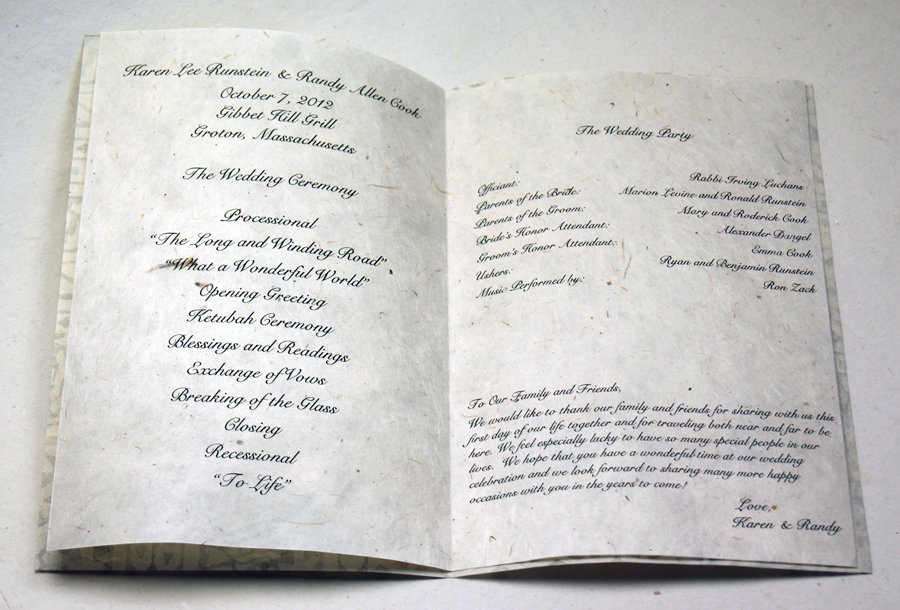 Karen Lee Runstein & Randy Allen Cook
October 7, 2012
Gibbet Hill Grill
Groton, Massachusetts
The Wedding Ceremony
Processional
"The Long and Winding Road"
"What a Wonderful World"
Opening Greeting
Ketubah Ceremony
Blessings and Readings
Exchange of Vows
Breaking of the Glass
Closing
Recessional
"To Life"
The Wedding Party
Officiant: Rabbi Irving Luchans
Parents of the Bride: Marion Levine and Ronald Runstein
Parents of the Groom: Mary and Roderick Cook
Bride's Honor Attendant: Alexander Dangel
Groom's Honor Attendant: Emma Cook
Ushers: Ryan and Benjamin Runstein
Music Performed by: Ron Zack
To Our Family and Friends,
We would like to thank our family and friends for sharing with us this
first day of our life together and for traveling both near and far to be
here. We feel especially lucky to have so many special people in our
lives. We hope that you have a wonderful time at our wedding
celebration and we look forward to sharing many more happy
occasions with you in the years to come!
Love,
Karen & Randy